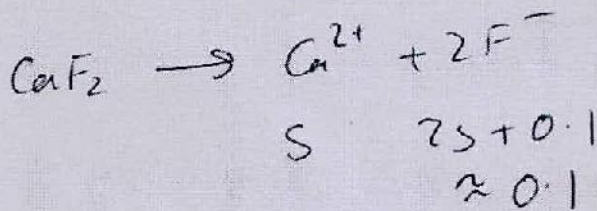 CaF₂ → Ca²⁺ + 2F⁻
S 2s + 0.1
≈ 0.1